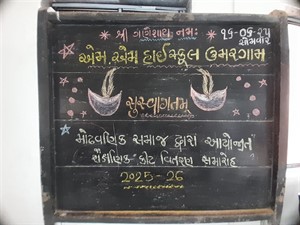 શ્રી ગણેશાય નમઃ
૧૫-૦૬-૨૫
રવિવાર
એમ. એમ હાઈસ્કૂલ ઉમરગામ
સુસ્વાગતમ
મોઢવણિક સમાજ દ્વારા આયોજીત
શૈક્ષણિક કીટ વિતરણ સમારોહ
2025-26